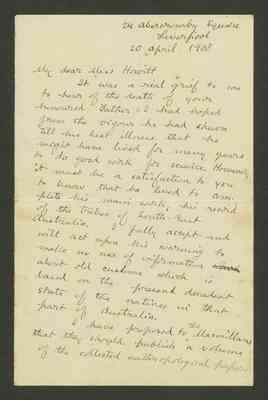 24 Abercromby Square
Liverpool
20 April 1908
My dear Miss Howitt
It was a real grief to me
to hear of the death of your
honoured Father. I had hoped
from the vigour he had shown
till his last illness that he
might have lived for many years
to do good work for science. However,
it must be a satisfaction to you
to know that he lived to com-
plete his main work, his record
of the tribes of South East
Australia. fully accept and
will act upon his warning to
make no use of information
about old customs which is
based on the present decadent
state of the natives in that
part of Australia.
I have proposed to the Macmillans
that they should publish a volume
of the collected anthropological papers